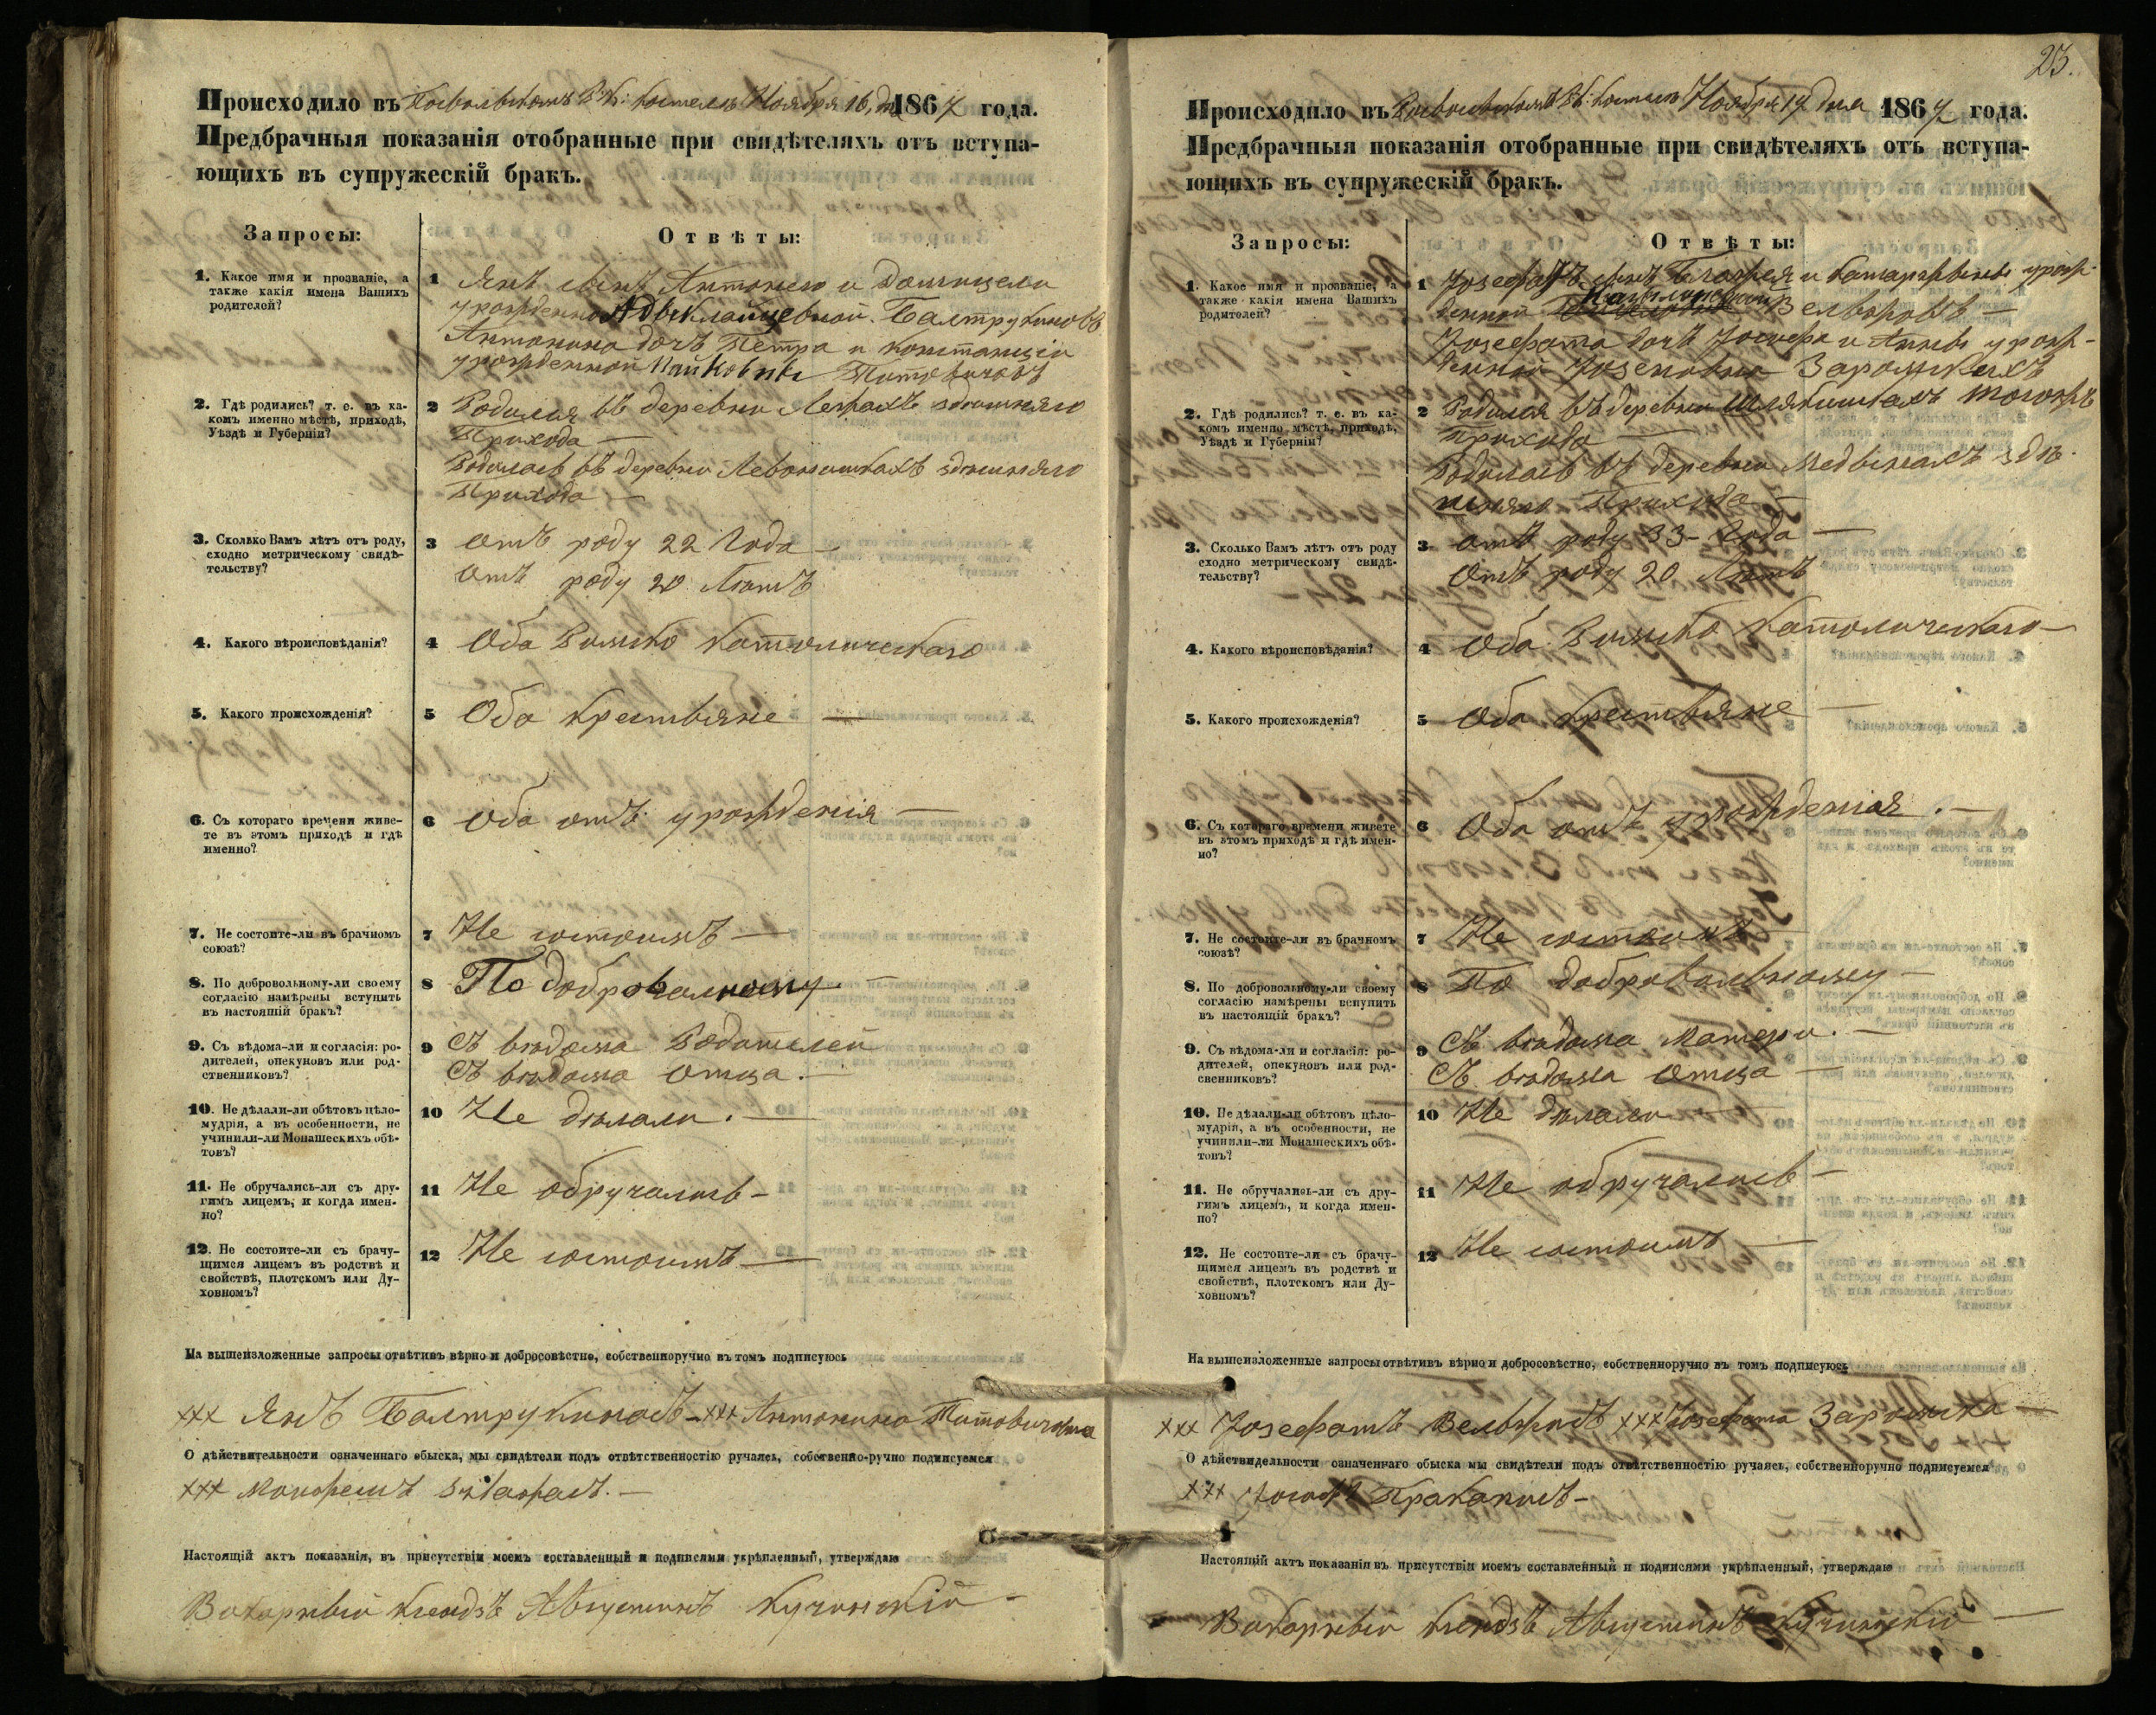 Происходило въ Посвольскомъ Р. К. костелѣ Ноября 16 дня 1867 года.
Предбрачныя показанія отобранные при свидѣтеляхъ отъ вступа-
ющихъ въ супружескій бракъ.
Запросы:
Отвѣты:
1. Какое имя и прозваніе, а
также какія имена Вашихъ
родителей?
1 Янъ сынъ Антонего и Доминцели
урожденной Балтрукиновъ
Антонина дочь Петра и Констанціи
урожденной Титовичовъ
2. Гдѣ родились? т. е. въ ка-
комъ именно мѣстѣ, приходѣ,
Уѣздѣ и Губерніи?
2 Родился въ деревни здѣшняго
Прихода —
Родилась въ деревни Левонишкахъ здѣшняго
Прихода —
3. Сколько Вамъ лѣтъ отъ роду,
сходно метрическому свидѣ-
тельству?
3 Отъ роду 22 Года —
Отъ роду 20 Лѣтъ
4. Какого вѣроисповѣданія?
4 Оба Римско Католическаго
5. Какого происхожденія?
5 Оба крестьяне —
6. Съ котораго времени живе-
те въ этомъ приходѣ и гдѣ
именно?
6 Оба отъ урожденія —
7. Не состоите-ли въ брачномъ
союзѣ?
7 Не состоимъ —
8. По добровольному-ли своему
согласію намѣрены вступить
въ настоящій бракъ?
8 По добровалному —
9. Съ вѣдома-ли и согласія: ро-
дителей, опекуновъ или род-
ственниковъ?
9 Съ вѣдома Родителей
Съ вѣдома Отца. —
10. Не дѣлали-ли обѣтовъ цѣло-
мудрія, а въ особенности, не
учинили-ли Монашескихъ обѣ-
товъ?
10 Не дѣлали. —
11. Не обручались-ли съ дру-
гимъ лицемъ, и когда имен-
но?
11 Не обручались —
12. Не состоите-ли съ брачу-
щимся лицемъ въ родствѣ и
свойствѣ, плотскомъ или Ду-
ховномъ?
12 Не состоимъ —
На вышеизложенные запросы отвѣтивъ вѣрно и добросовѣстно, собственноручно въ томъ подписуюсь
ххх Янъ Балтрукинасъ — ххх Антонина Титовичовна
О дѣйствительности означеннаго обыска, мы свидѣтели подъ отвѣтственностію ручаясь, собственно-ручно подписуемся
ххх
Настоящій актъ показанія, въ присутствіи моемъ составленный и подписями укрѣпленный, утверждаю
Викарный Ксендзъ Августинъ Кучинскій —
23.
Происходило въ Посвольскомъ Р. К. костелѣ Ноября 19 дня 1867 года.
Предбрачныя показанія отобранные при свидѣтеляхъ отъ вступа-
ющихъ въ супружескій бракъ.
Запросы:
Отвѣты:
1. Какое имя и прозваніе, а
также какія имена Вашихъ
родителей?
1 Іозефатъ сынъ и Катаржины урож-
денной —
Іозефата дочь Іосифа и Анны урож-
денной
2. Гдѣ родились? т. е. въ ка-
комъ именно мѣстѣ, приходѣ,
Уѣздѣ и Губерніи?
2 Родился въ деревни тогожъ
Прихода —
Родилась въ деревни здѣ-
шняго Прихода —
3. Сколько Вамъ лѣтъ отъ роду
сходно метрическому свидѣ-
тельству?
3 Отъ роду 33 Года —
Отъ роду 20 Лѣтъ
4. Какого вѣроисповѣданія?
4 Оба Римско Католическаго —
5. Какого происхожденія?
5 Оба Крестьяне —
6. Съ котораго времени живете
въ этомъ приходѣ и гдѣ имен-
но?
6 Оба отъ урожденія. —
7. Не состоите-ли въ брачномъ
союзѣ?
7 Не состоимъ —
8. По добровольному-ли своему
согласію намѣрены вступить
въ настоящій бракъ?
8 По добровальному —
9. Съ вѣдома-ли и согласія: ро-
дителей, опекуновъ или род-
свенниковъ?
9 Съ вѣдома Матери. —
Съ вѣдома Отца —
10. Не дѣлали-ли обѣтовъ цѣло-
мудрія, а въ особенности, не
учинили-ли Монашескихъ обѣ-
товъ?
10 Не дѣлали —
11. Не обручались-ли съ дру-
гимъ лицемъ, и когда имен-
но?
11 Не обручались —
12. Не состоите-ли съ брачу-
щимся лицемъ въ родствѣ и
свойствѣ, плотскомъ или Ду-
ховномъ?
12 Не состоимъ —
На вышеизложенные запросы отвѣтивъ вѣрно и добросовѣстно, собственноручно въ томъ подписуюсь
ххх Іозефатъ ххх Іозефата —
О дѣйствидельности означеннаго обыска мы свидѣтели подъ отвѣтственностію ручаясь, собственноручно подписуемся
ххх Пракаписъ —
Настоящій актъ показанія въ присутствіи моемъ составленный и подписями укрѣпленный, утверждаю
Викарный Ксендзъ Августинъ Кучинскій —